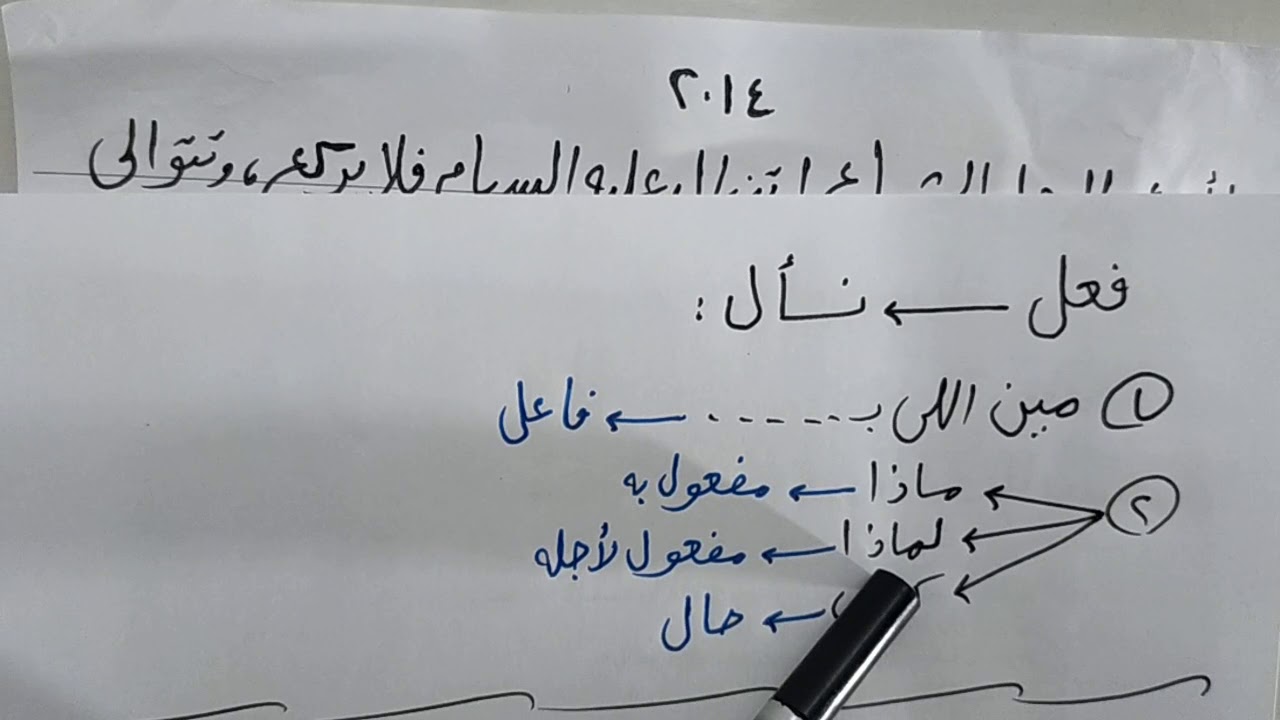 ٢٠١٤
السام فلا يدركه، وتتوالى
فعل ← نسأل :
١ مين اللى بـ ------ ← فاعل
٢ ماذا ← مفعول به
لماذا ← مفعول لأجله
← حال